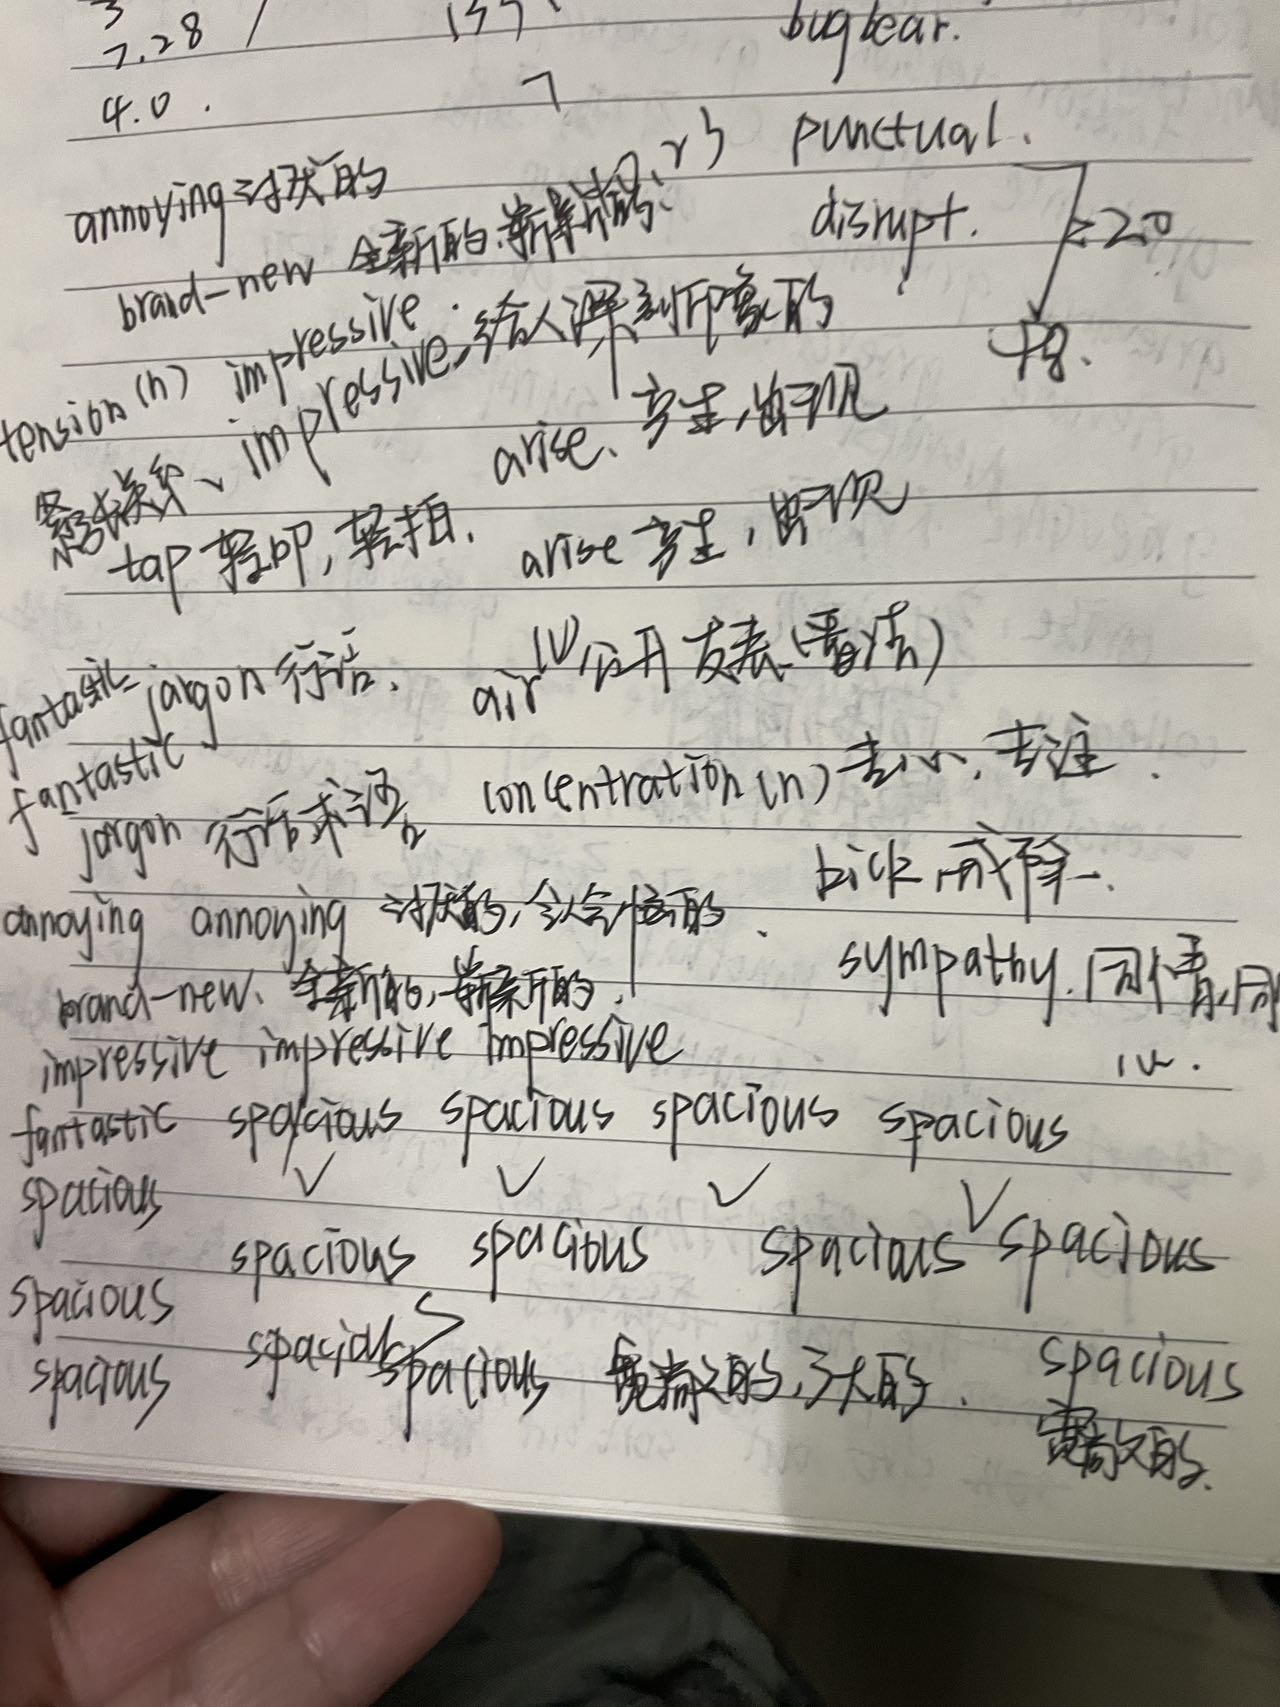 7.28
bugbear.
4.0.
punctual.
annoying 讨厌的
disrupt.
brand-new 全新的、崭新的
tension (n) impressive.
impressive 给人深刻印象的
arise、产生,出现
紧张关系、
tap 轻叩,轻拍.
arise 产生,出现
fantastic jargon 行话.
air (V) 公开发表(看法)
fantastic
concentration (n) 专心,专注.
jargon 行话术语
kick 戒除.
annoying annoying 讨厌的,令人气恼的.
sympathy. 同情,同
brand-new、全新的,崭新的.
impressive impressive impressive
fantastic spacious spacious spacious spacious
spacious
spacious spacious spacious spacious
spacious
spacious spacious 宽敞的,广大的. spacious
spacious
宽敞的.